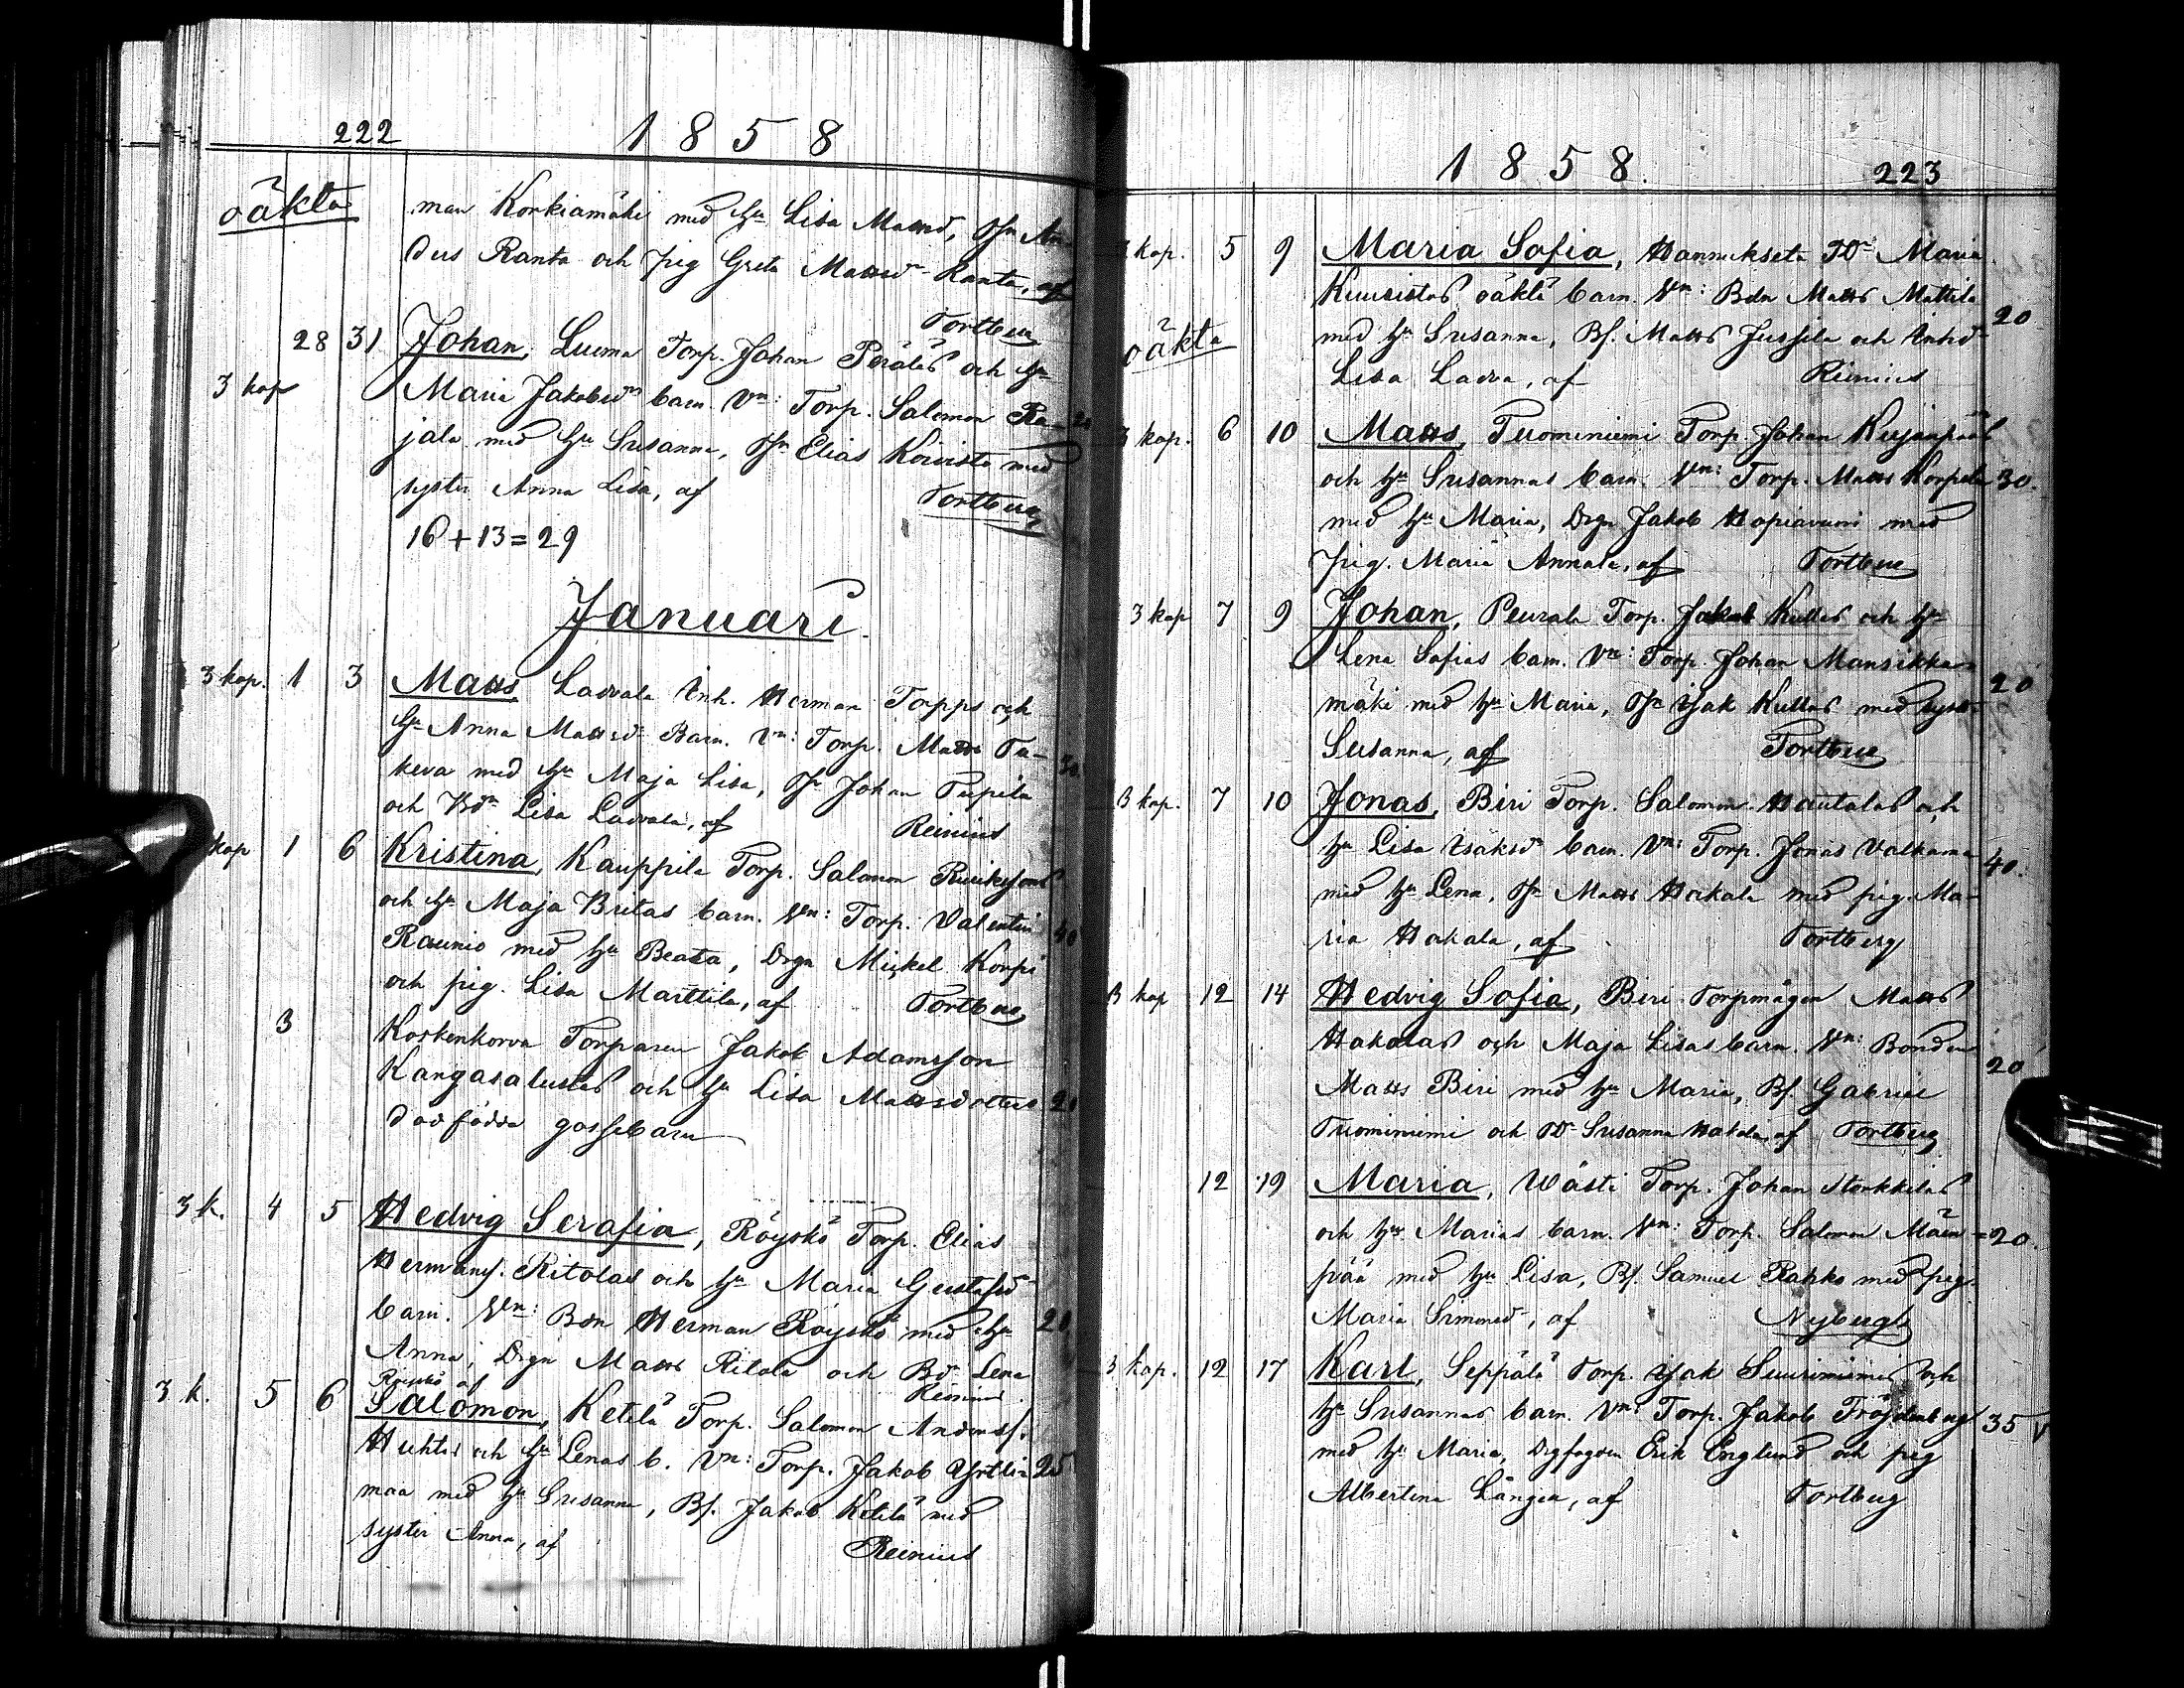 222 1858
oäkta
man Korkiamäki med hu Lisa Mattsd, Dr An-
ders Ranta och pig Greta Mattsdr Ranta, af
Tortberg
28 31 Johan, Luoma Torp. Johan Peräläs och hu
3 kop Maria Jakobsdrs barn. Vn: Torp. Salomon Ra- 20
jala med hu Susanna, Dr Elias Koivisto med
syster Anna Lisa, af Tortberg
16+13=29
Januari.
3 kop. 1 3 Matts Ladvala Inh. Herman Torpps och
hu Anna Mattsdrs Barn. Vn: Torp. Matts Tu- 30
keva med hu Maja Lisa, Dr Johan Pupila
och Bdr Lisa Ladvala, af Reinius
kop 1 6 Kristina, Kauppila Torp. Salomon
och hu Maja Britas barn. Vn: Torp. Valentin 40
Raunio med hu Beata, Drgn Mickel Korpi
och pig. Lisa Marttila, af Tortberg
3 Koskenkorva Torparen Jakob Adamsson
Kangasalustas och hu Lisa Mattsdotters 20
dödfödda gossebarn
3 k. 4 5 Hedvig Serafia, Röyskö Torp. Elias
Hermansf. Ritolas och hu Maria Gustafsd
barn. Vn: Bdn Herman Röyskö med hu 20
Anna, Drgn Matts Ritola och Bdr Lena
Röyskö af Reinius
3 k. 5 6 Salomon, Ketelä Torp. Salomon Andersf.
Huhtas och hu Lenas b. Vn: Torp. Jakob Yrttin- 25
maa med hu Susanna, Bf. Jakob Ketelä med
syster Anna, af Reinius
1858. 223
3 kop. 5 9 Maria Sofia, Hannuksela TDr Maria
Kuusistos oäkta barn. Vn: Bdn Matts Mattila 20
oäkta med hu Susanna, Bf. Matts Jussila och Inhd
Lisa Ladva, af Reinius
3 kop. 6 10 Matts, Tuominiemi Torp. Johan Kujanpääs
och hu Susannas barn. Vn: Torp. Matts Korpela 30.
med hu Maria, Drgn Jakob Hapiavuori med
pig. Maria Annala, af Tortberg
3 kop 7 9 Johan, Peurala Torp. Jakob Kultas och hu
Lena Sofias barn. Vn: Torp. Johan Mansikka-
mäki med hu Maria, Dr Isak Kultas med syster 20
Susanna, af Tortberg
3 kop. 7 10 Jonas, Biri Torp. Salomon Hautalas och
hu Lisa Isaksdrs barn. Vn: Torp. Jonas Valkama 40.
med hu Lena, Dr Matts Hakala med pig. Ma-
ria Hakala, af Tortberg
3 kop 12 14 Hedvig Sofia, Biri Torpmågen Matts
Hakalas och Maja Lisas barn. Vn: Bonden
Matts Biri med hu Maria, Bf. Gabriel 20
Tuominiemi och TDr Susanna Hakala, af Tortberg
12 19 Maria, Wästi Torp. Johan Storkkilas
och hu Marias barn. Vn: Torp. Salomon Mäen- 20.
pää med hu Lisa, Bf. Samuel Rahko med pig.
Maria Simonsd, af Nybergh
3 kop. 12 17 Karl, Seppälä Torp. Isak Suuriniemis och
hu Susannas barn. Vn: Torp. Jakob Fröjdenberg 35 V
med hu Maria, Drgfogden Erik Englund och pig
Albertina Lången, af Tortberg